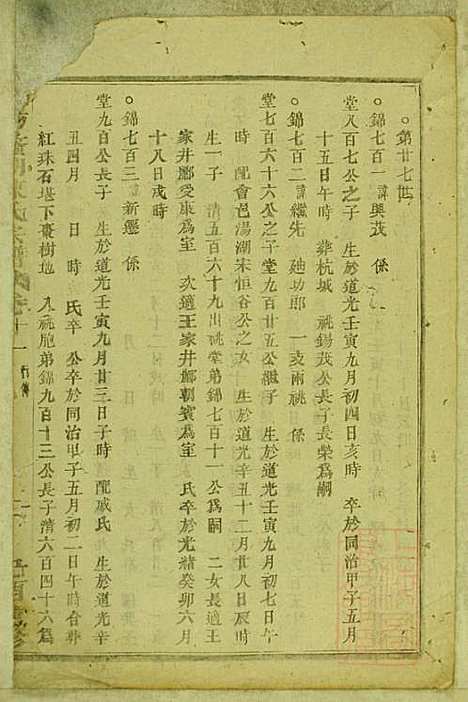 ○第廿七世
○錦七百一 諱興茂 係
堂八百七公之子 生於道光壬寅九月初四日亥時 卒於同治甲子五月
十五日午時 葬杭城 祧錫茂公長子長榮爲嗣
○錦七百二 諱繼先 廸功郎 一支兩祧 係
堂七百六十六公之子堂九百廿五公繼子 生於道光壬寅九月初七日午
時 配會邑湯湖宋恒谷公之女 生於道光辛丑十二月廿八日辰時
生一子 清五百六十九出祧堂弟錦七百十一公爲嗣 二女長適王
家井鄺愛康爲室 次適王家井鄺朝賓爲室 氏卒於光緒癸卯六月
十八日戌時
○錦七百三 諱新 係
堂九百公長子 生於道光壬寅九月廿三日子時 配戚氏 生於道光辛
丑四月 日 時 氏卒 公卒於同治甲子五月初二日午時合葬
紅珠石塔下棗樹地 入祧胞弟錦九百十三公長子清六百四十六爲
氏宗譜 卷十一